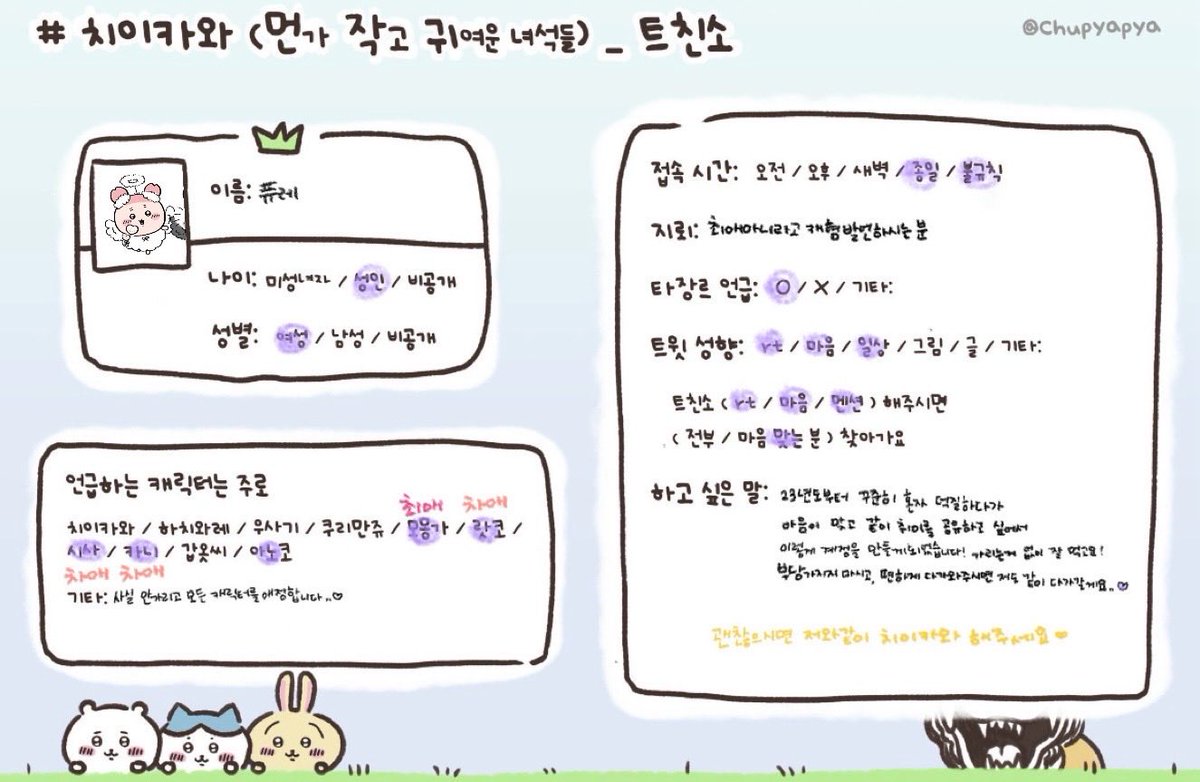 # 치이카와 (먼가 작고 귀여운 녀석들) _ 트친소
@Chupyapya
이름: 퓨레
나이: 미성년자 / 성인 / 비공개
성별: 여성 / 남성 / 비공개
언급하는 캐릭터는 주로
최애 차애
치이카와 / 하치와레 / 우사기 / 쿠리만쥬 / 모몽가 / 랏코 /
시사 / 카니 / 갑옷씨 / 아노코
차애 차애
기타: 사실 안가리고 모든 캐릭터를 애정합니다..♡
접속 시간: 오전 / 오후 / 새벽 / 종일 / 불규칙
지뢰: 최애아니라고 캐혐발언하시는 분
타장르 언급: O / X / 기타:
트윗 성향: rt / 마음 / 일상 / 그림 / 글 / 기타:
트친소 ( rt / 마음 / 멘션 ) 해주시면
( 전부 / 마음 맞는 분 ) 찾아가요
하고 싶은 말: 23년도부터 꾸준히 혼자 덕질하다가
마음이 맞고 같이 치이를 공유하고 싶어서
이렇게 계정을 만들게되었습니다! 가리는거 없이 잘 먹고요!
부담가지지 마시고, 편하게 다가와주시면 저도 같이 다가갈게요..♡
괜찮으시면 저와같이 치이카와 해주세요♡